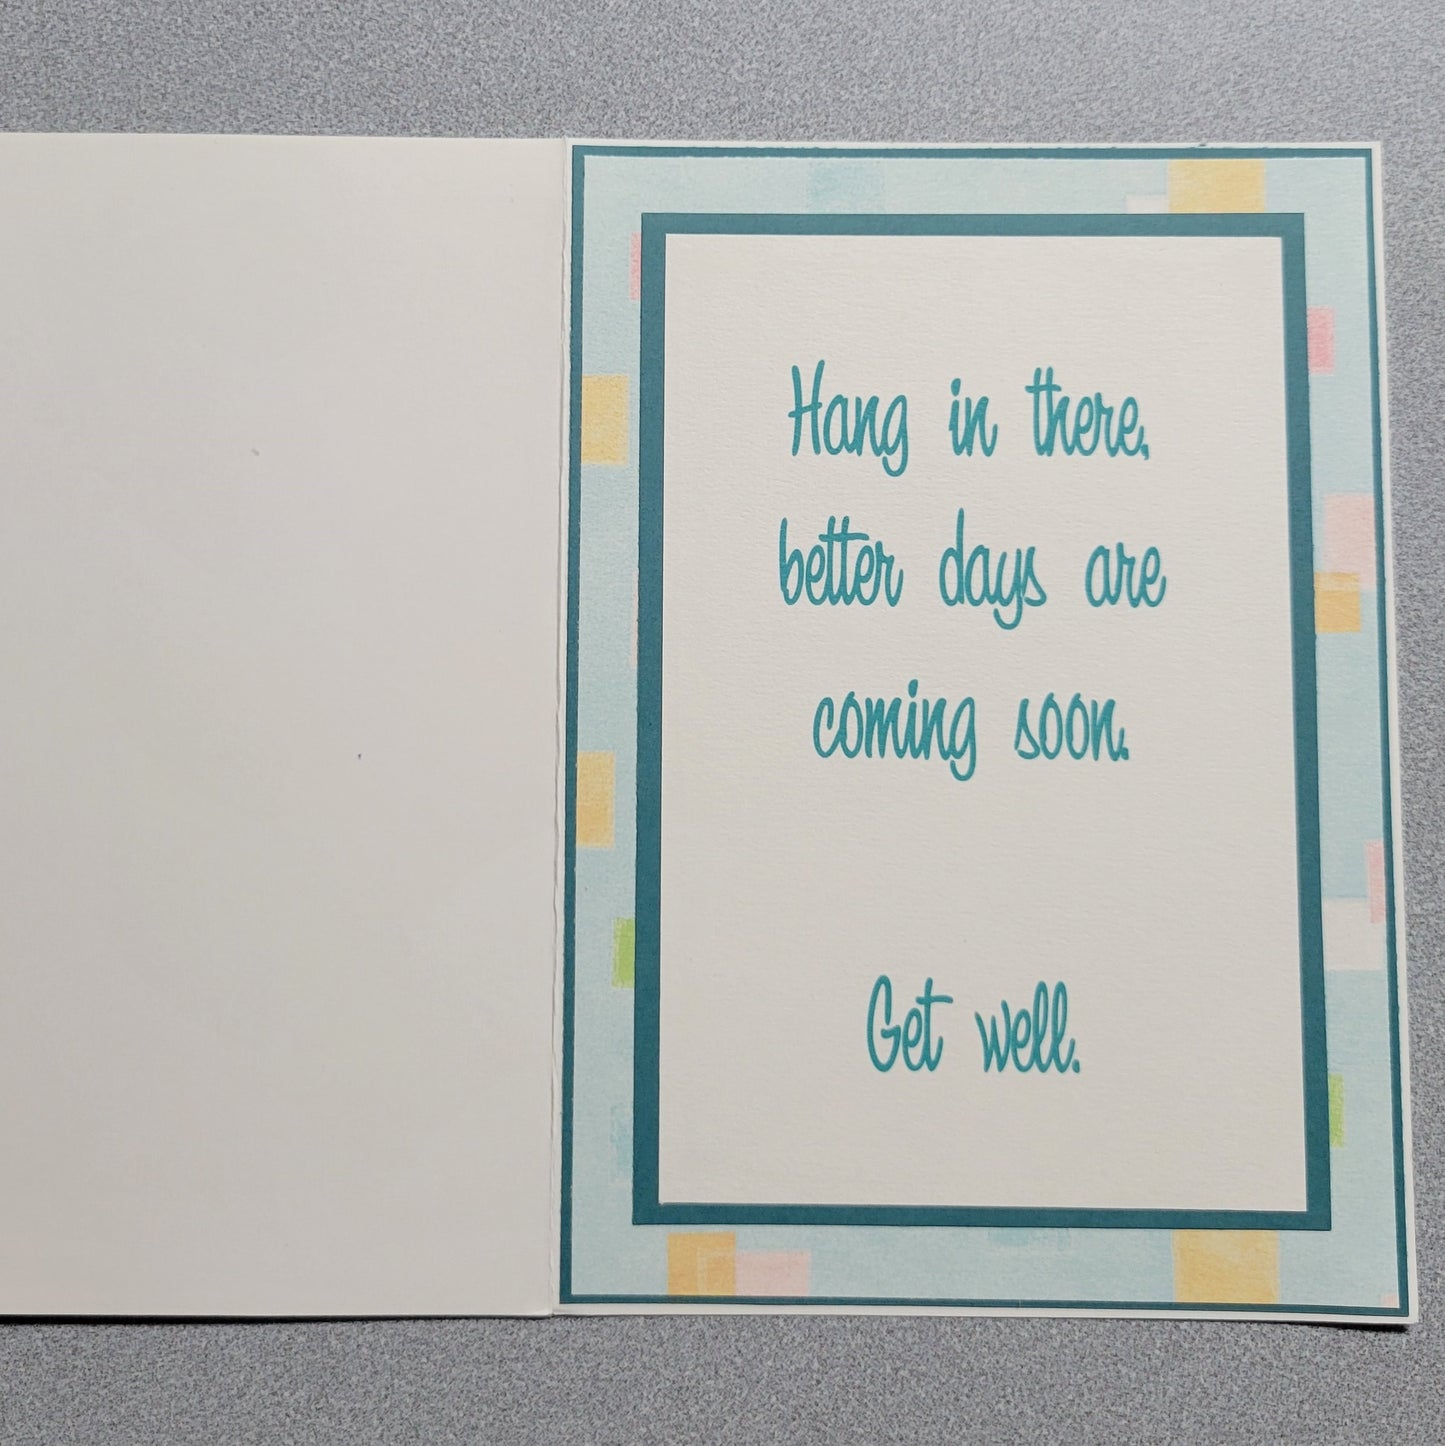 Hang in there,
better days are
coming soon.
Get well.